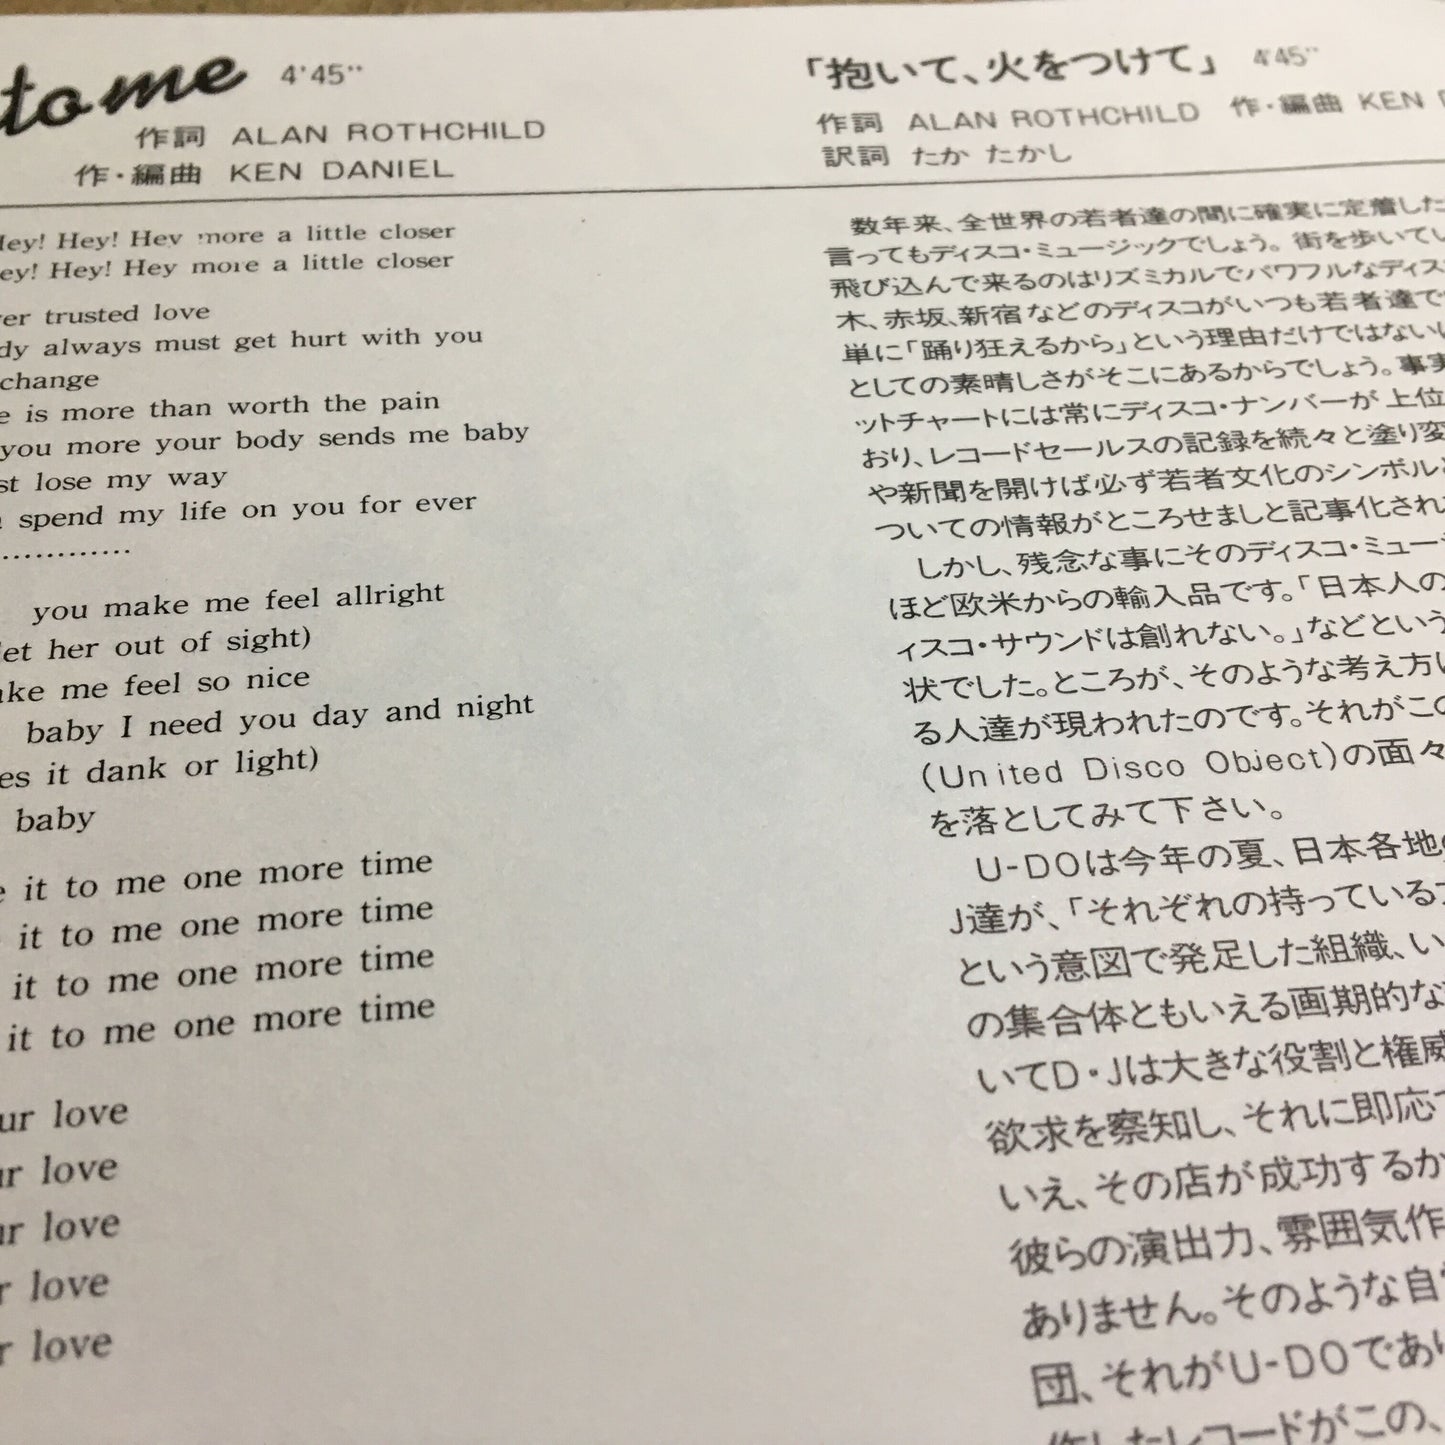 to me 4'45''
作詞 ALAN ROTHCHILD
作・編曲 KEN DANIEL
Hey! Hey! Hey more a little closer
Hey! Hey! more a little closer
trusted love
always must get hurt with you
change
is more than worth the pain
you more your body sends me baby
lose my way
spend my life on you for ever
.............
you make me feel allright
let her out of sight)
me feel so nice
baby I need you day and night
it dank or light)
baby
it to me one more time
it to me one more time
it to me one more time
it to me one more time
love
love
love
love
love
「抱いて、火をつけて」 4'45''
作詞 ALAN ROTHCHILD 作・編曲 KEN
訳詞 たか たかし
数年来、全世界の若者達の間に確実に定着した
言ってもディスコ・ミュージックでしょう。街を歩いてい
飛び込んで来るのはリズミカルでパワフルなディス
木、赤坂、新宿などのディスコがいつも若者達で
単に「踊り狂えるから」という理由だけではない
としての素晴しさがそこにあるからでしょう。事実
ットチャートには常にディスコ・ナンバーが上位
おり、レコードセールスの記録を続々と塗り変
や新聞を開けば必ず若者文化のシンボル
ついての情報がところせましと記事化され
しかし、残念な事にそのディスコ・ミュー
ほど欧米からの輸入品です。「日本人の
ィスコ・サウンドは創れない。」などという
状でした。ところが、そのような考え方
る人達が現われたのです。それがこの
(United Disco Object)の面々
を落としてみて下さい。
U-DOは今年の夏、日本各地の
J達が、「それぞれの持っている
という意図で発足した組織、い
の集合体ともいえる画期的な
いてD・Jは大きな役割と権威
欲求を察知し、それに即応
いえ、その店が成功するか
彼らの演出力、雰囲気作
ありません。そのような自
団、それがU-DOであり
作したレコードがこの、